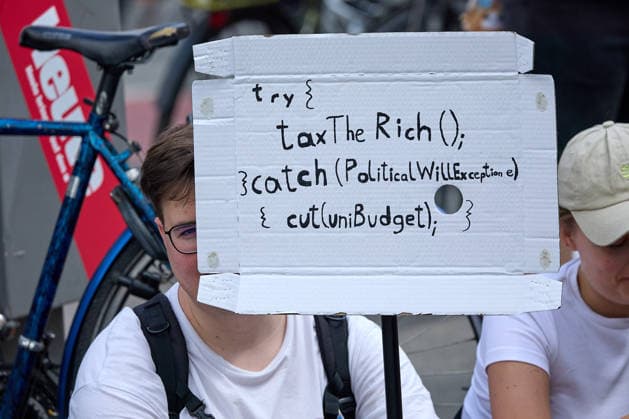 neue
try {
taxTheRich();
}catch(PoliticalWillException e)
{ cut(uniBudget); }